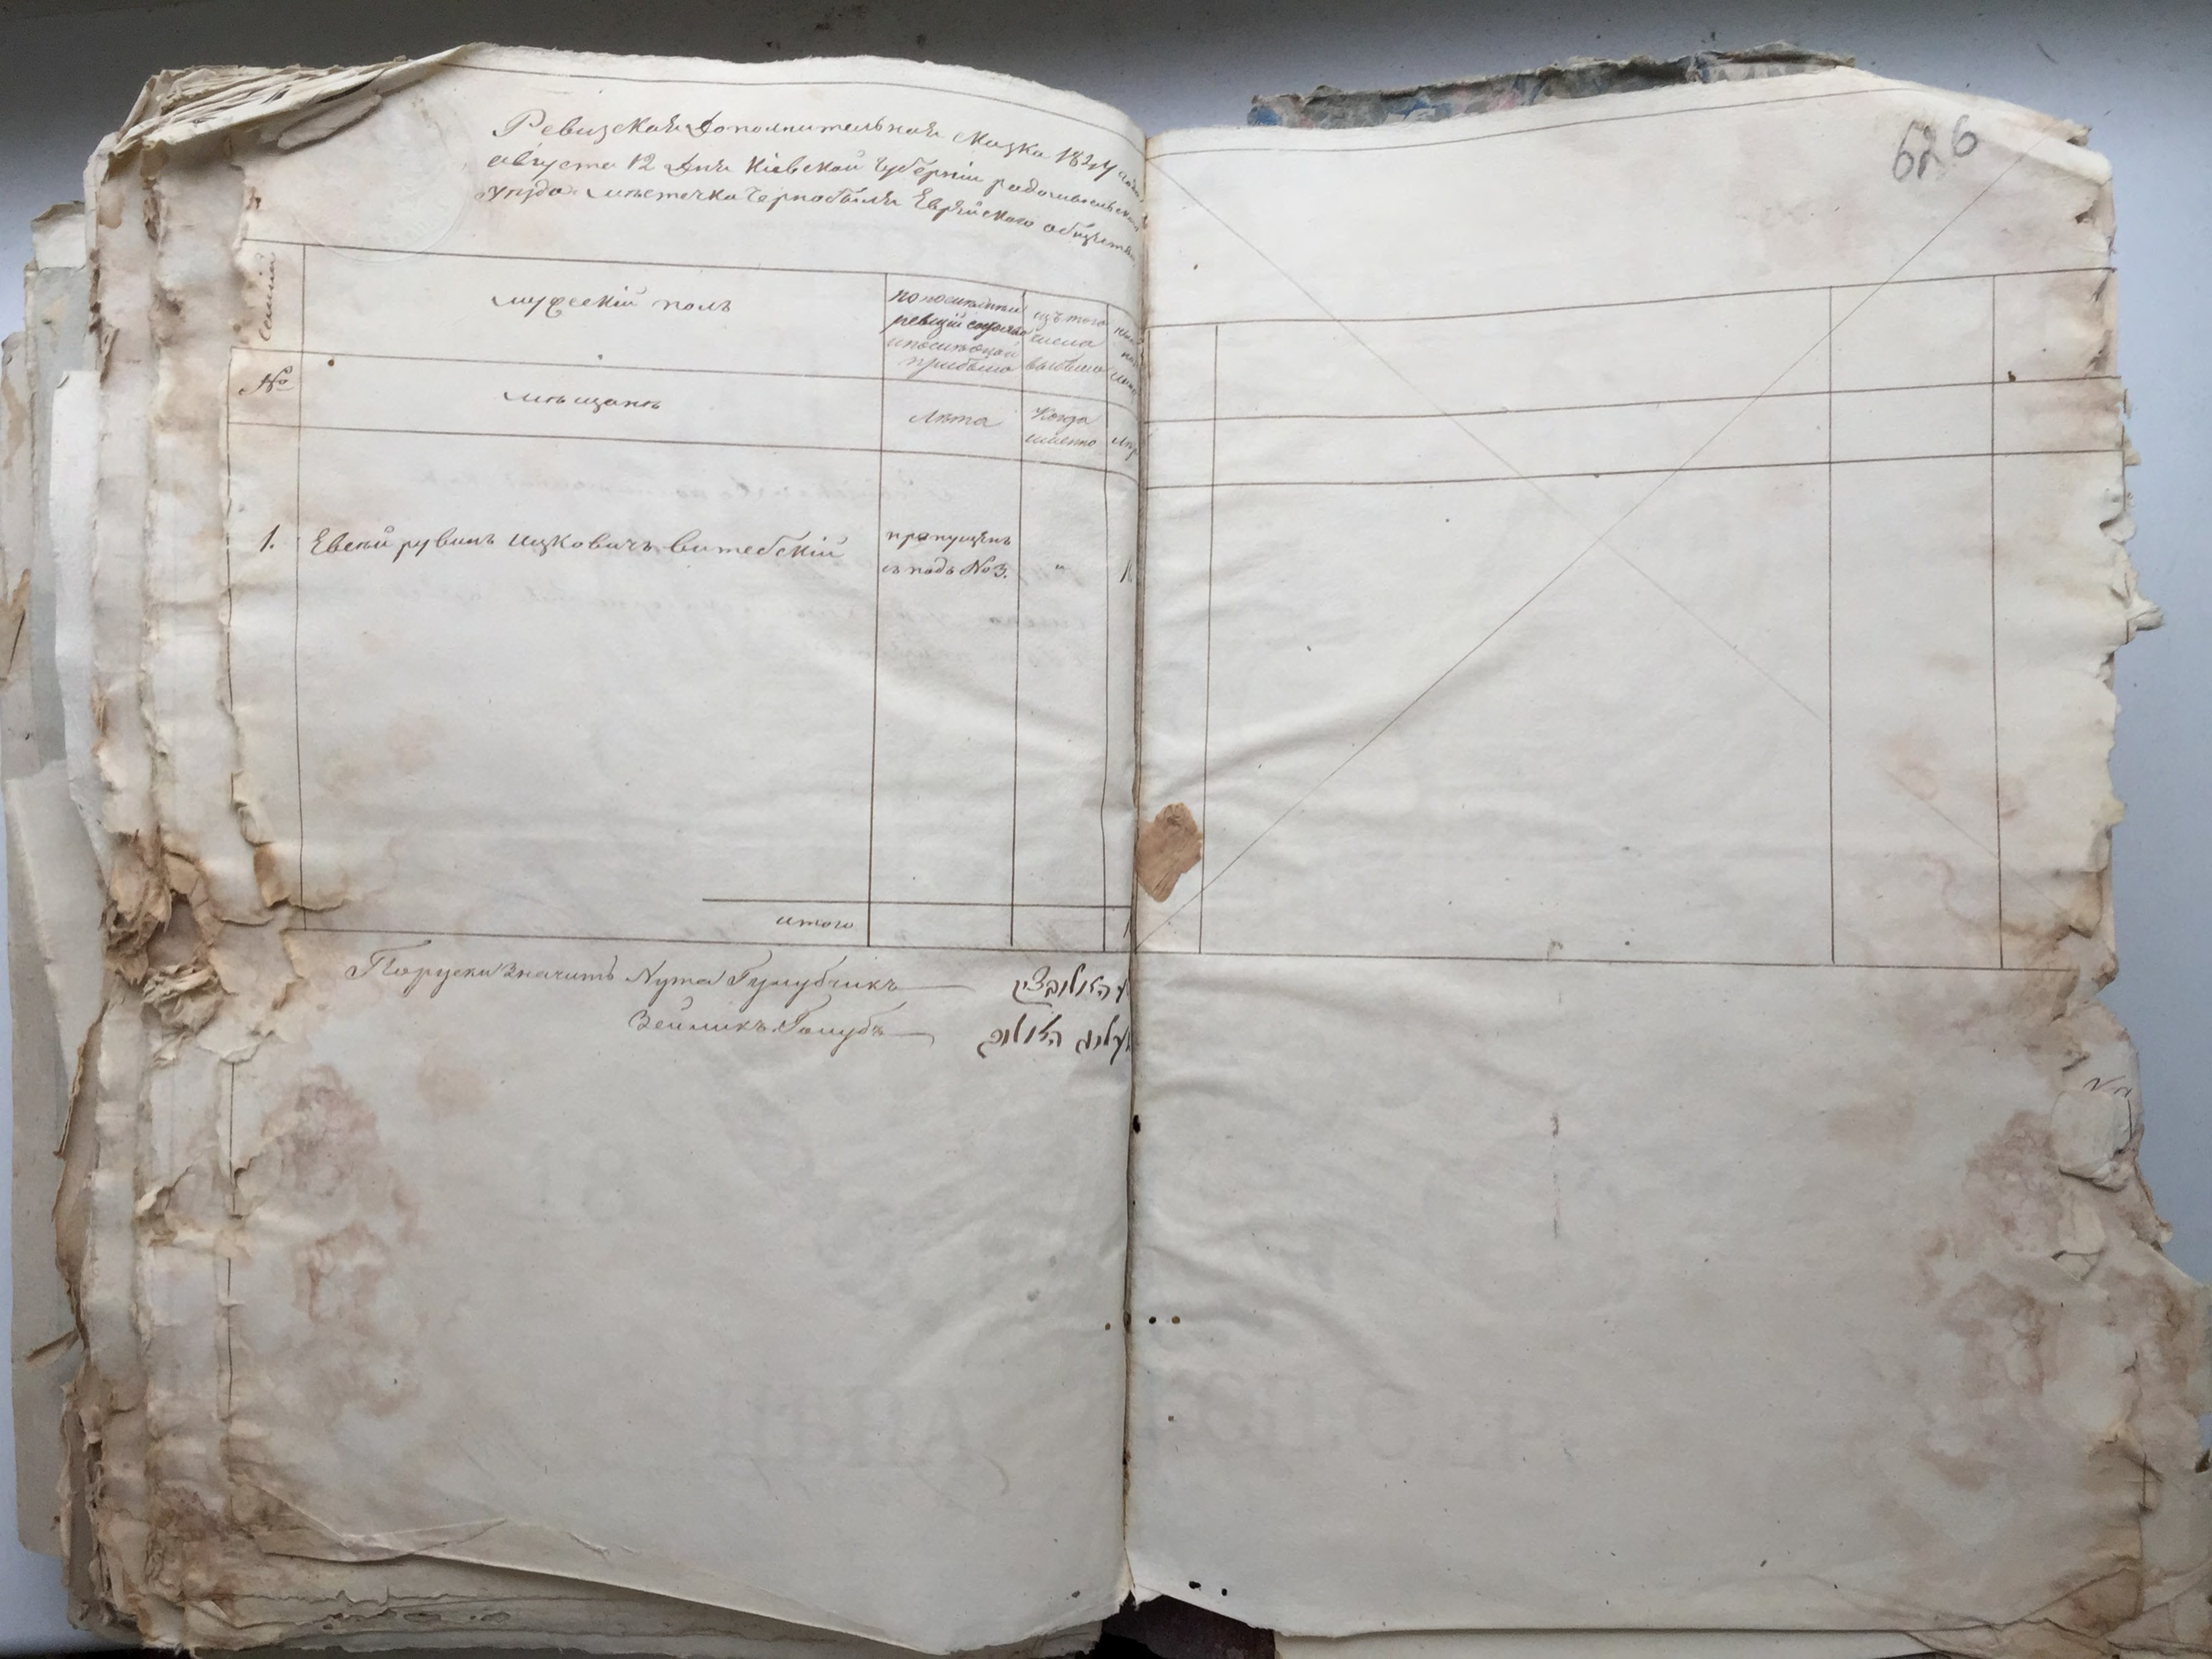 Ревизская Дополнительная Сказка 1824 года
августа 12 Дня Кіевской Губерніи радомысльскаго
уезда местечка Чернобыля Еврейского общества
626
семей
мужескій полъ
по последней
ревизіи состояло
и после оной
прибыло
изъ того
числа
выбыло
№
мещане
лета
Когда
именно
1.
Евсей рувинъ ицковичъ витебскій
пропущенъ
съ подъ № 3.
"
1
итого
1
Поруски Значитъ Нута Гулубчикъ
Зейликъ Голубъ